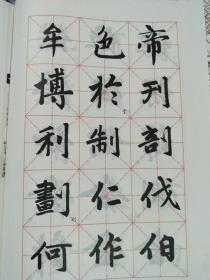 帝刊剖伐伯
色於制仁作
牟博利劃何